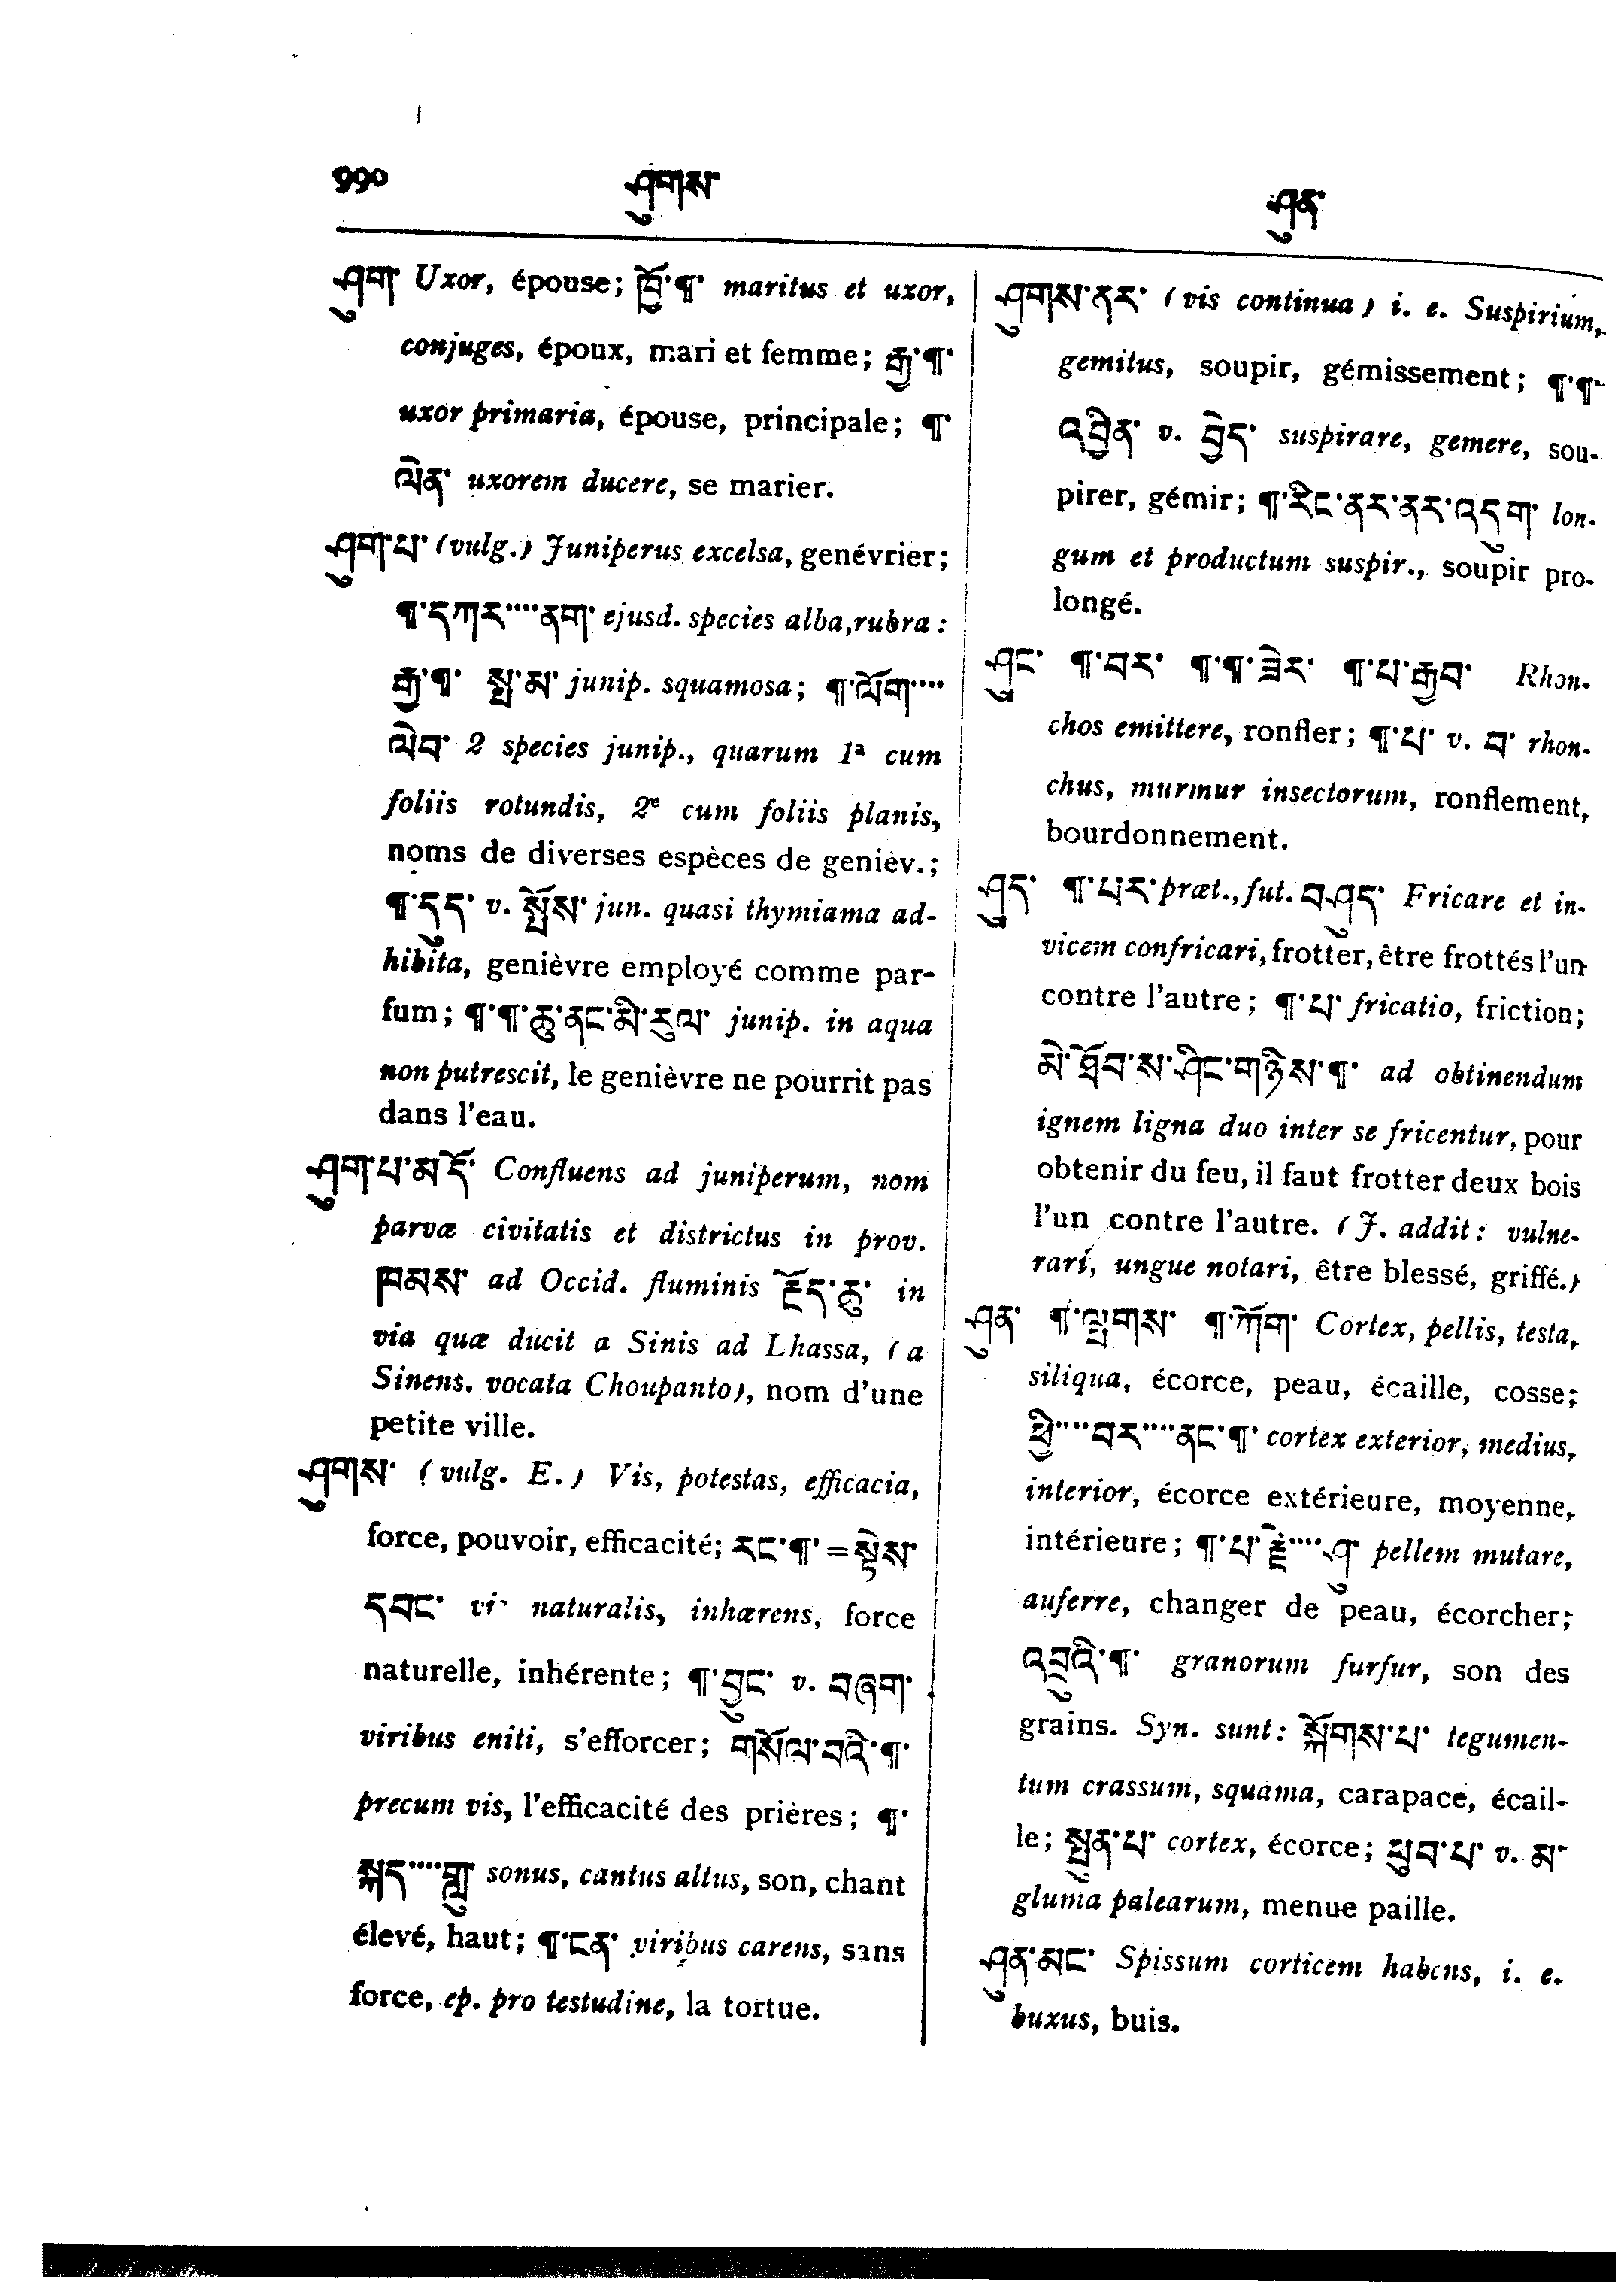 990 ཤུགས་ ཤུན་
ཤུག་ Uxor, épouse; ཁྱོ་¶་ maritus et uxor,
conjuges, époux, mari et femme; རྒྱ་¶་
uxor primaria, épouse, principale; ¶་
ལེན་ uxorem ducere, se marier.
ཤུག་པ་ (vulg.) Juniperus excelsa, genévrier;
¶་དཀར་....ནག་ ejusd. species alba, rubra:
རྒྱ་¶་ སྤ་མ་ junip. squamosa; ¶་ལོག་....
ལེབ་ 2 species junip., quarum 1ª cum
foliis rotundis, 2ᵉ cum foliis planis,
noms de diverses espèces de genièv.;
¶་དུད་ v. སྤོས་ jun. quasi thymiama ad-
hibita, genièvre employé comme par-
fum; ¶་¶་ཆུ་ནང་མི་རུལ་ junip. in aqua
non putrescit, le genièvre ne pourrit pas
dans l'eau.
ཤུག་པ་མདོ་ Confluens ad juniperum, nom
parvæ civitatis et districtus in prov.
ཁམས་ ad Occid. fluminis རྫོད་ཆུ་ in
via quæ ducit a Sinis ad Lhassa, (a
Sinens. vocata Choupanto), nom d'une
petite ville.
ཤུགས་ (vulg. E.) Vis, potestas, efficacia,
force, pouvoir, efficacité; རང་¶་ = སྟེས་
དབང་ vi naturalis, inhærens, force
naturelle, inhérente; ¶་བྱུང་ v. བཞག་
viribus eniti, s'efforcer; གསོལ་བའི་¶་
precum vis, l'efficacité des prières; ¶་
སྐད་....གླུ་ sonus, cantus altus, son, chant
élevé, haut; ¶་ངན་ viribus carens, sans
force, ep. pro testudine, la tortue.
ཤུགས་ནར་ (vis continua) i. e. Suspirium,
gemitus, soupir, gémissement; ¶་¶་
འབྱིན་ v. བྱེད་ suspirare, gemere, sou-
pirer, gémir; ¶་རིང་ནར་ནར་འདུག་ lon-
gum et productum suspir., soupir pro-
longé.
ཤུང་ ¶་བར་ ¶་¶་ཟེར་ ¶་པ་རྒྱབ་ Rhon-
chos emittere, ronfler; ¶་པ་ v. བ་ rhon-
chus, murmur insectorum, ronflement,
bourdonnement.
ཤུད་ ¶་པར་ præt., fut. བཤུད་ Fricare et in-
vicem confricari, frotter, être frottés l'un
contre l'autre; ¶་པ་ fricatio, friction;
མེ་ཐོབ་ས་ཤིང་གཉིས་¶་ ad obtinendum
ignem ligna duo inter se fricentur, pour
obtenir du feu, il faut frotter deux bois
l'un contre l'autre. (J. addit: vulne-
rari, ungue notari, être blessé, griffé.)
ཤུན་ ¶་ལྤགས་ ¶་ཀོག་ Cortex, pellis, testa,
siliqua, écorce, peau, écaille, cosse;
ཕྱི་....བར་....ནང་¶་ cortex exterior, medius,
interior, écorce extérieure, moyenne,
intérieure; ¶་པ་རྗེ་....ཤུ་ pellem mutare,
auferre, changer de peau, écorcher;
འབྲུའི་¶་ granorum furfur, son des
grains. Syn. sunt: སྐོགས་པ་ tegumen-
tum crassum, squama, carapace, écail-
le; སྤུན་པ་ cortex, écorce; ཕུབ་པ་ v. མ་
gluma palearum, menue paille.
ཤུན་མང་ Spissum corticem habens, i. e.
buxus, buis.